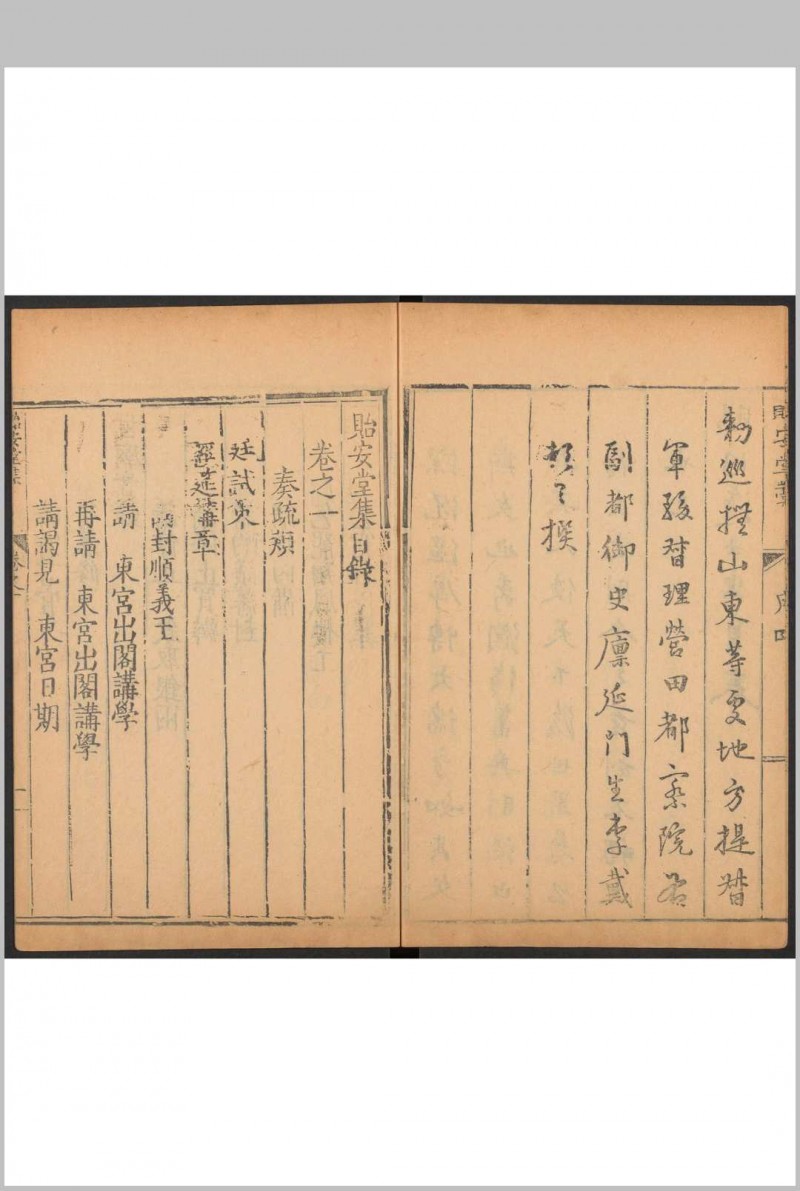 勅巡撫山東等處地方提督
軍務督理營田都察院右
副都御史廩延門生李戴
頓首撰
貽安堂集
序四
貽安堂集目錄
卷之一
奏疏類
廷試策
經筵講章
請封順義王
請　東宮出閣講學
再請　東宮出閣講學
請謁見　東宮日期
貽安堂集